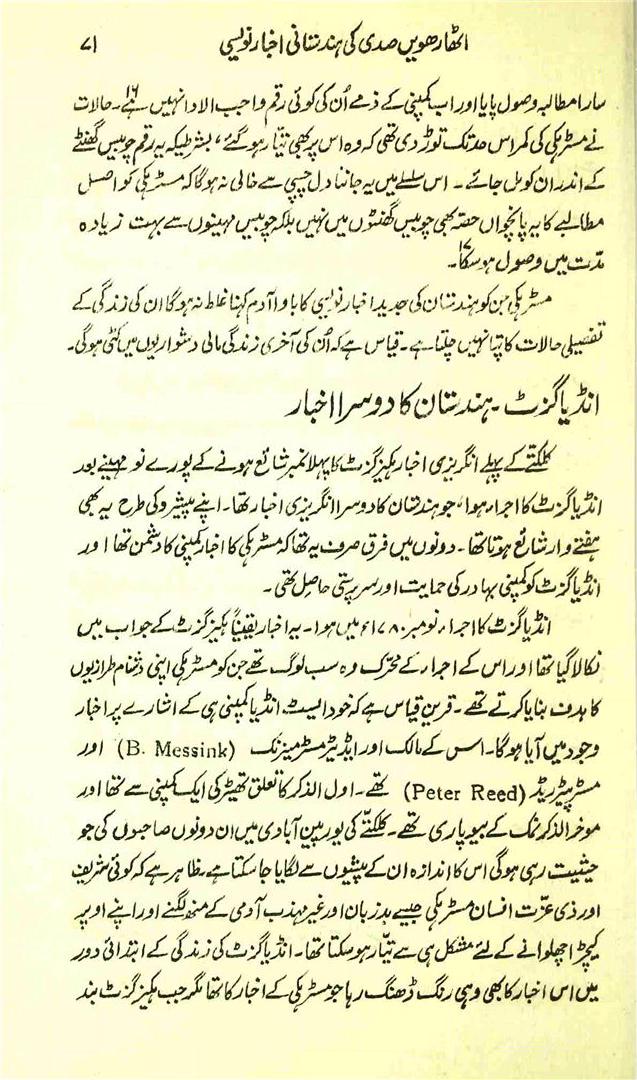 اٹھارھویں صدی کی ہندستانی اخبار نویسی ۷۱
سارا مطالبہ وصول پایا اور اب کمپنی کے ذمے اُن کی کوئی رقم واجب الادا نہیں ہے۱۶۔ حالات
نے مسٹر ہکی کی کمر اس حد تک توڑ دی تھی کہ وہ اس پر بھی تیّار ہو گئے، بشرطیکہ یہ رقم چوبیس گھنٹے
کے اندر ان کو مل جائے۔ اس سلسلے میں یہ جاننا دل چسپی سے خالی نہ ہوگا کہ مسٹر ہکی کو اصل
مطالبے کا یہ پانچواں حصّہ بھی چوبیس گھنٹوں میں نہیں بلکہ چوبیس مہینوں سے بہت زیادہ
مدّت میں وصول ہو سکا۱۷۔
مسٹر ہکی جن کو ہندستان کی جدید اخبار نویسی کا باوا آدم کہنا غلط نہ ہوگا ان کی زندگی کے
تفصیلی حالات کا پتا نہیں چلتا ہے۔ قیاس ہے کہ اُن کی آخری زندگی مالی دشواریوں میں کٹی ہوگی۔
انڈیا گزٹ۔ ہندستان کا دوسرا اخبار
کلکتے کے پہلے انگریزی اخبار ہکیز گزٹ کا پہلا نمبر شائع ہونے کے پورے نو مہینے بعد
انڈیا گزٹ کا اجراء ہوا، جو ہندستان کا دوسرا انگریزی اخبار تھا۔ اپنے پیشرو کی طرح یہ بھی
ہفتے وار شائع ہوتا تھا۔ دونوں میں فرق صرف یہ تھا کہ مسٹر ہکی کا اخبار کمپنی کا دشمن تھا اور
انڈیا گزٹ کو کمپنی بہادر کی حمایت اور سرپرستی حاصل تھی۔
انڈیا گزٹ کا اجراء نومبر ۱۷۸۰ء میں ہوا۔ یہ اخبار یقیناً ہکیز گزٹ کے جواب میں
نکالا گیا تھا اور اس کے اجراء کے محرّک وہ سب لوگ تھے جن کو مسٹر ہکی اپنی دشنام طرازیوں
کا ہدف بنایا کرتے تھے۔ قرین قیاس ہے کہ خود ایسٹ انڈیا کمپنی ہی کے اشارے پر اخبار
وجود میں آیا ہوگا۔ اس کے مالک اور ایڈیٹر مسٹر میزنک (B. Messink) اور
مسٹر پیٹر ریڈ (Peter Reed) تھے۔ اول الذکر کا تعلق تھیٹر کی ایک کمپنی سے تھا اور
موخر الذکر نمک کے بیوپاری تھے۔ کلکتّے کی یورپین آبادی میں ان دونوں صاحبوں کی جو
حیثیت رہی ہوگی اس کا اندازہ ان کے پیشیوں سے لگایا جا سکتا ہے۔ ظاہر ہے کہ کوئی شریف
اور ذی عزّت انسان مسٹر ہکی جیسے بدزبان اور غیر مہذب آدمی کے منھ لگنے اور اپنے اوپر
کیچڑ اچھلوانے کے لئے مشکل ہی سے تیّار ہو سکتا تھا۔ انڈیا گزٹ کی زندگی کے ابتدائی دور
میں اس اخبار کا بھی وہی رنگ ڈھنگ رہا جو مسٹر ہکی کے اخبار کا تھا مگر جب ہکیز گزٹ بند